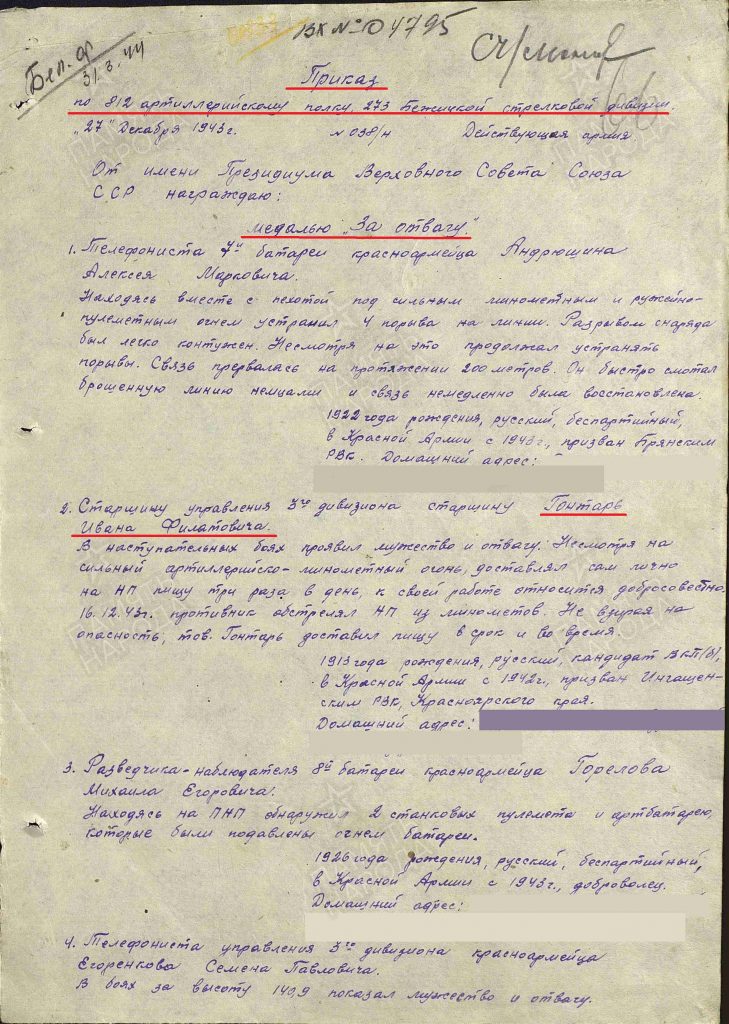 Вх № 04795
Бел. ф
31.3.44
Приказ
по 812 артиллерийскому полку, 273 Бежичкой стрелковой дивизии.
„27" Декабря 1943 г. № 038/н Действующая армия
От имени Президиума Верховного Совета Союза
ССР награждаю:
медалью „За отвагу"
1. Телефониста 7й батареи красноармейца Андрюшина
Алексея Марковича.
Находясь вместе с пехотой под сильным минометным и ружейно-
пулеметным огнем устранил 4 порыва на линии. Разрывом снаряда
был легко контужен. Несмотря на это продолжал устранять
порывы. Связь прервалась на протяжении 200 метров. Он быстро смотал
брошенную линию немцами и связь немедленно была восстановлена.
1922 года рождения, русский, беспартийный,
в Красной Армии с 1943 г., призван Брянским
РВК. Домашний адрес:
2. Старшину управления 3го дивизиона старшину Гонтарь
Ивана Филатовича.
В наступательных боях проявил мужество и отвагу. Несмотря на
сильный артиллерийско-минометный огонь, доставлял сам лично
на НП пищу три раза в день, к своей работе относится добросовестно.
16.12.43 г. противник обстрелял НП из минометов. Не взирая на
опасность, тов. Гонтарь доставил пищу в срок и во время.
1913 года рождения, русский, кандидат ВКП(б),
в Красной Армии с 1942 г., призван Ингашен-
ским РВК, Красноярского края.
Домашний адрес:
3. Разведчика-наблюдателя 8й батареи красноармейца Горелова
Михаила Егоровича.
Находясь на ПНП обнаружил 2 станковых пулемета и артбатарею,
которые были подавлены огнем батареи.
1926 года рождения, русский, беспартийный,
в Красной Армии с 1943 г., доброволец.
Домашний адрес:
4. Телефониста управления 3го дивизиона красноармейца
Егоренкова Семена Павловича.
В боях за высоту 140,9 показал мужество и отвагу.